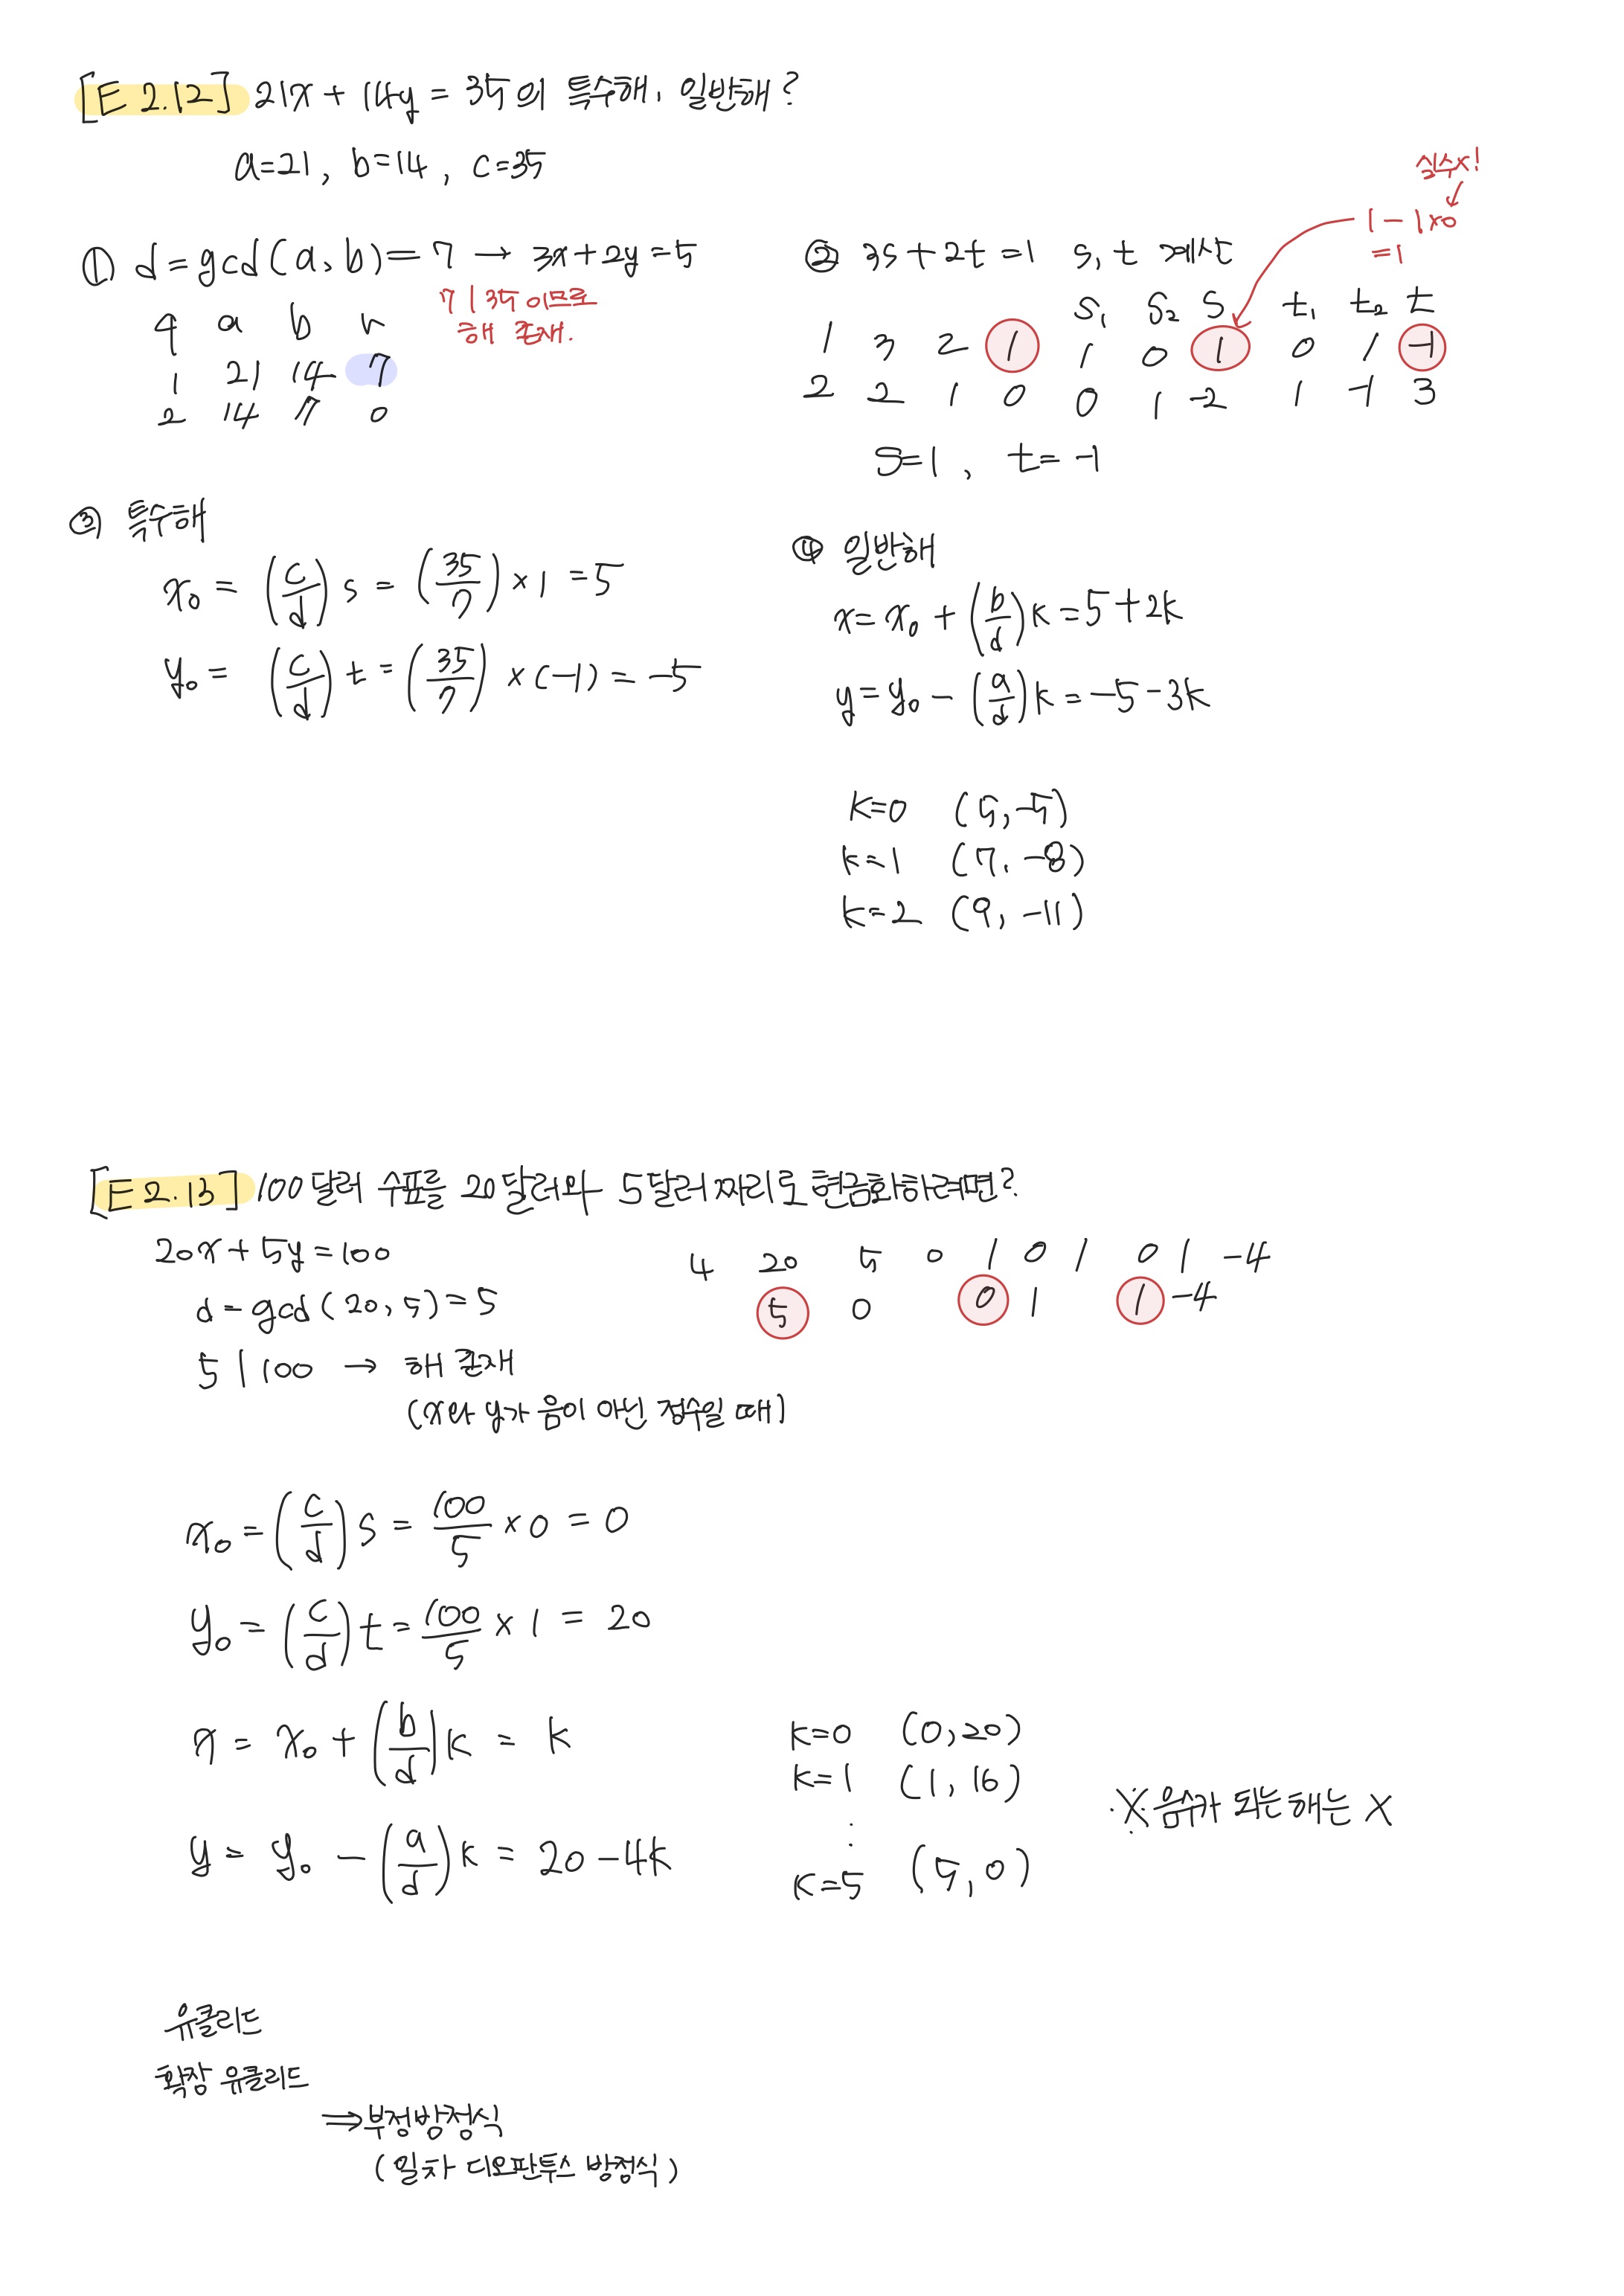 [E 2.12] 21x + 14y = 35의 특수해, 일반해?
a=21, b=14, c=35
① d = gcd(a, b) = 7 → 3x+2y=5
7 | 35 이므로
해 존재.
q a b r
1 21 14 7
2 14 7 0
② 3s+2t=1 s, t 계산
실수x!
1 - 1×0
=1
s₁ s₂ s t₁ t₂ t
1 3 2 1 1 0 1 0 1 -1
2 2 1 0 0 1 -2 1 -1 3
s=1, t=-1
③ 특수해
x₀ = (c/d) s = (35/7) × 1 = 5
y₀ = (c/d) t = (35/7) × (-1) = -5
④ 일반해
x = x₀ + (b/d) k = 5+2k
y = y₀ - (a/d) k = -5-3k
k=0 (5, -5)
k=1 (7, -8)
k=2 (9, -11)
[E 2.13] 100달러 수표를 20달러와 5달러 짜리로 현금화하려면?
20x+5y=100
d = gcd(20, 5) = 5
5 | 100 → 해 존재
(x와 y가 음이 아닌 정수일 때)
4 20 5 0 1 0 1 0 1 -4
5 0 0 1 1 -4
x₀ = (c/d) s = 100/5 × 0 = 0
y₀ = (c/d) t = 100/5 × 1 = 20
x = x₀ + (b/d) k = k
y = y₀ - (a/d) k = 20-4k
k=0 (0, 20)
k=1 (1, 16)
⋮
k=5 (5, 0)
※음수가 되는 해는 X
유클리드
확장 유클리드
⇒부정방정식
(일차 디오판투스 방정식)